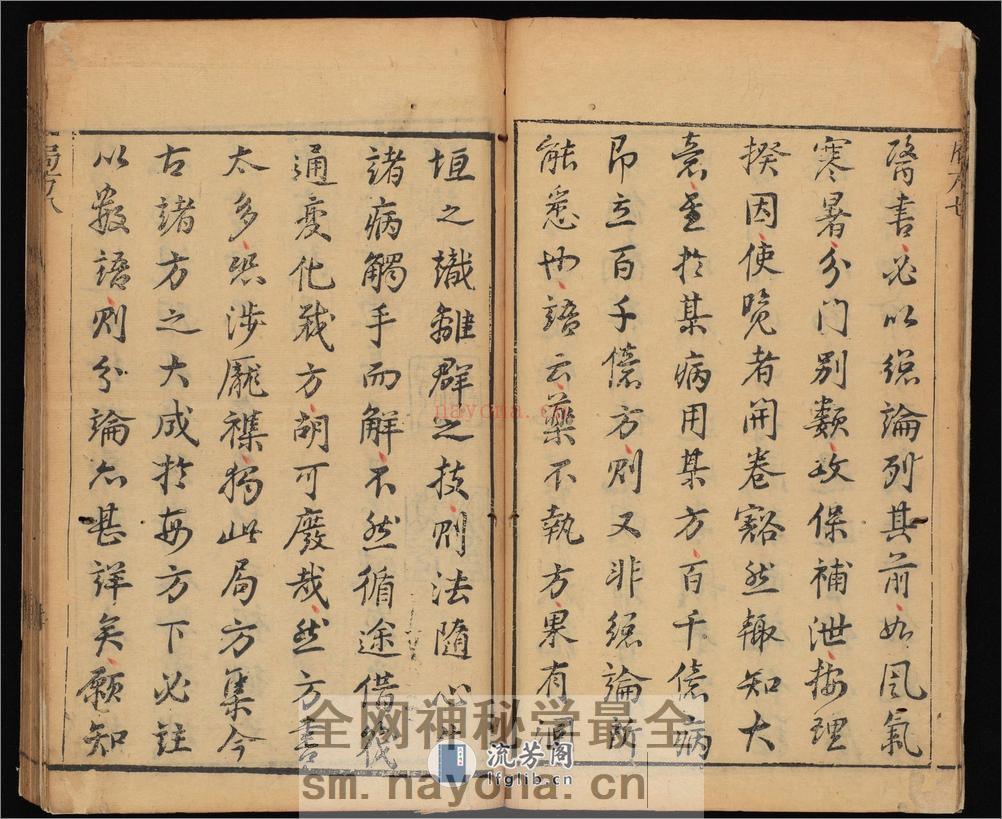 醫書必以總論列其前如風氣
寒暑分門別類攻保補泄按理
揆因使覽者開卷豁然輙知大
意至於某病用某方百千億病
即立百千億方則又非總論所
能悉也語云藥不執方果有洞
垣之識離群之技則法隨心生
諸病觸手而解不然循途借筏
通變化裁方胡可廢哉然方書
太多恐涉厖襍獨此局方集今
古諸方之大成於每方下必註
以數語則分論亦甚詳矣願知
nayona.cn
全网神秘学最全
流芳阁
lfglib.cn
sm.nayona.cn